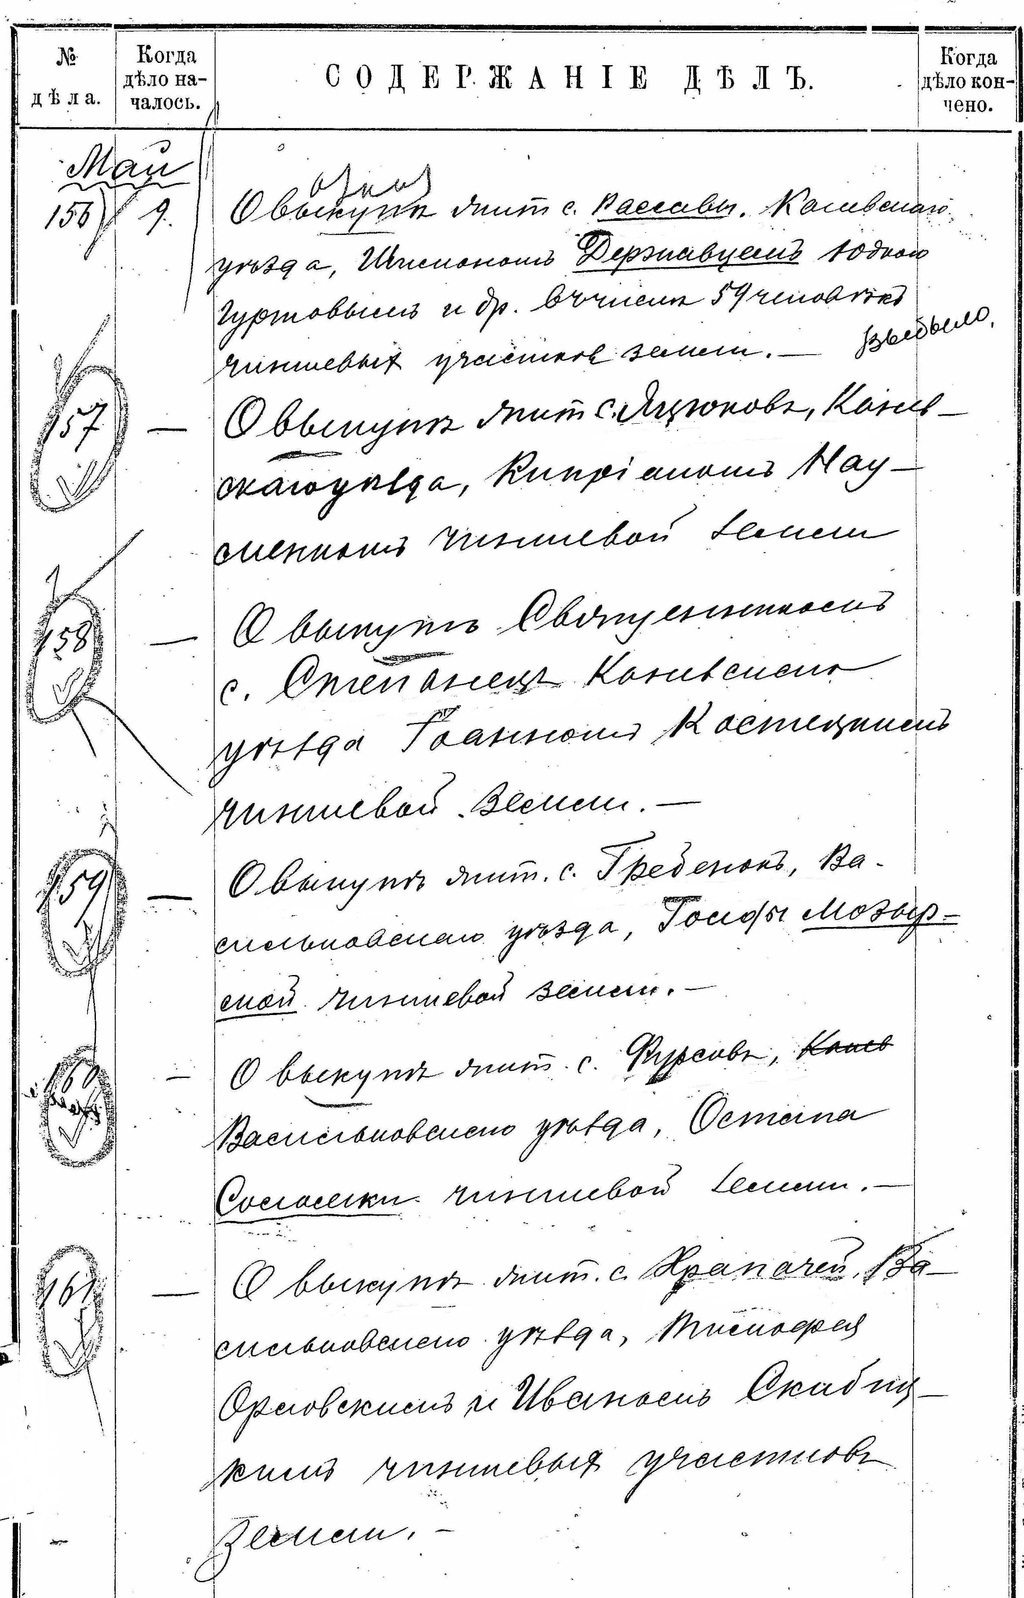 № дѣла.
Когда дѣло началось.
СОДЕРЖАНІЕ ДѢЛЪ.
Когда дѣло кончено.
Май
156 9. О выкупѣ жит. с. Рассавы, Каневскаго
уѣзда, Державцемъ
Гуртовымъ и др. въ числѣ 59 человѣкъ
чиншевыхъ участковъ земли. —
Выбыло.
157 — О выкупѣ жит. с. Яцюковъ, Канев-
скаго уѣзда, Кипріаномъ Нау-
менкомъ чиншевой земли
158 — О выкупѣ Священникомъ
с. Степанецъ Каневскаго
уѣзда Іоанномъ Костецкимъ
чиншевой земли. —
159 — О выкупѣ жит. с. Гребенокъ, Ва-
сильковскаго уѣзда, Іосифы Мозыр-
ской чиншевой земли. —
160 — О выкупѣ жит. с. Фурсовъ, Канев
Васильковскаго уѣзда, Остапа
Соломки чиншевой земли. —
161 — О выкупѣ жит. с. Храпачей, Ва-
сильковскаго уѣзда, Тимофея
Орловскимъ и Иваномъ Скабиц-
кимъ чиншевыхъ участковъ
земли. —